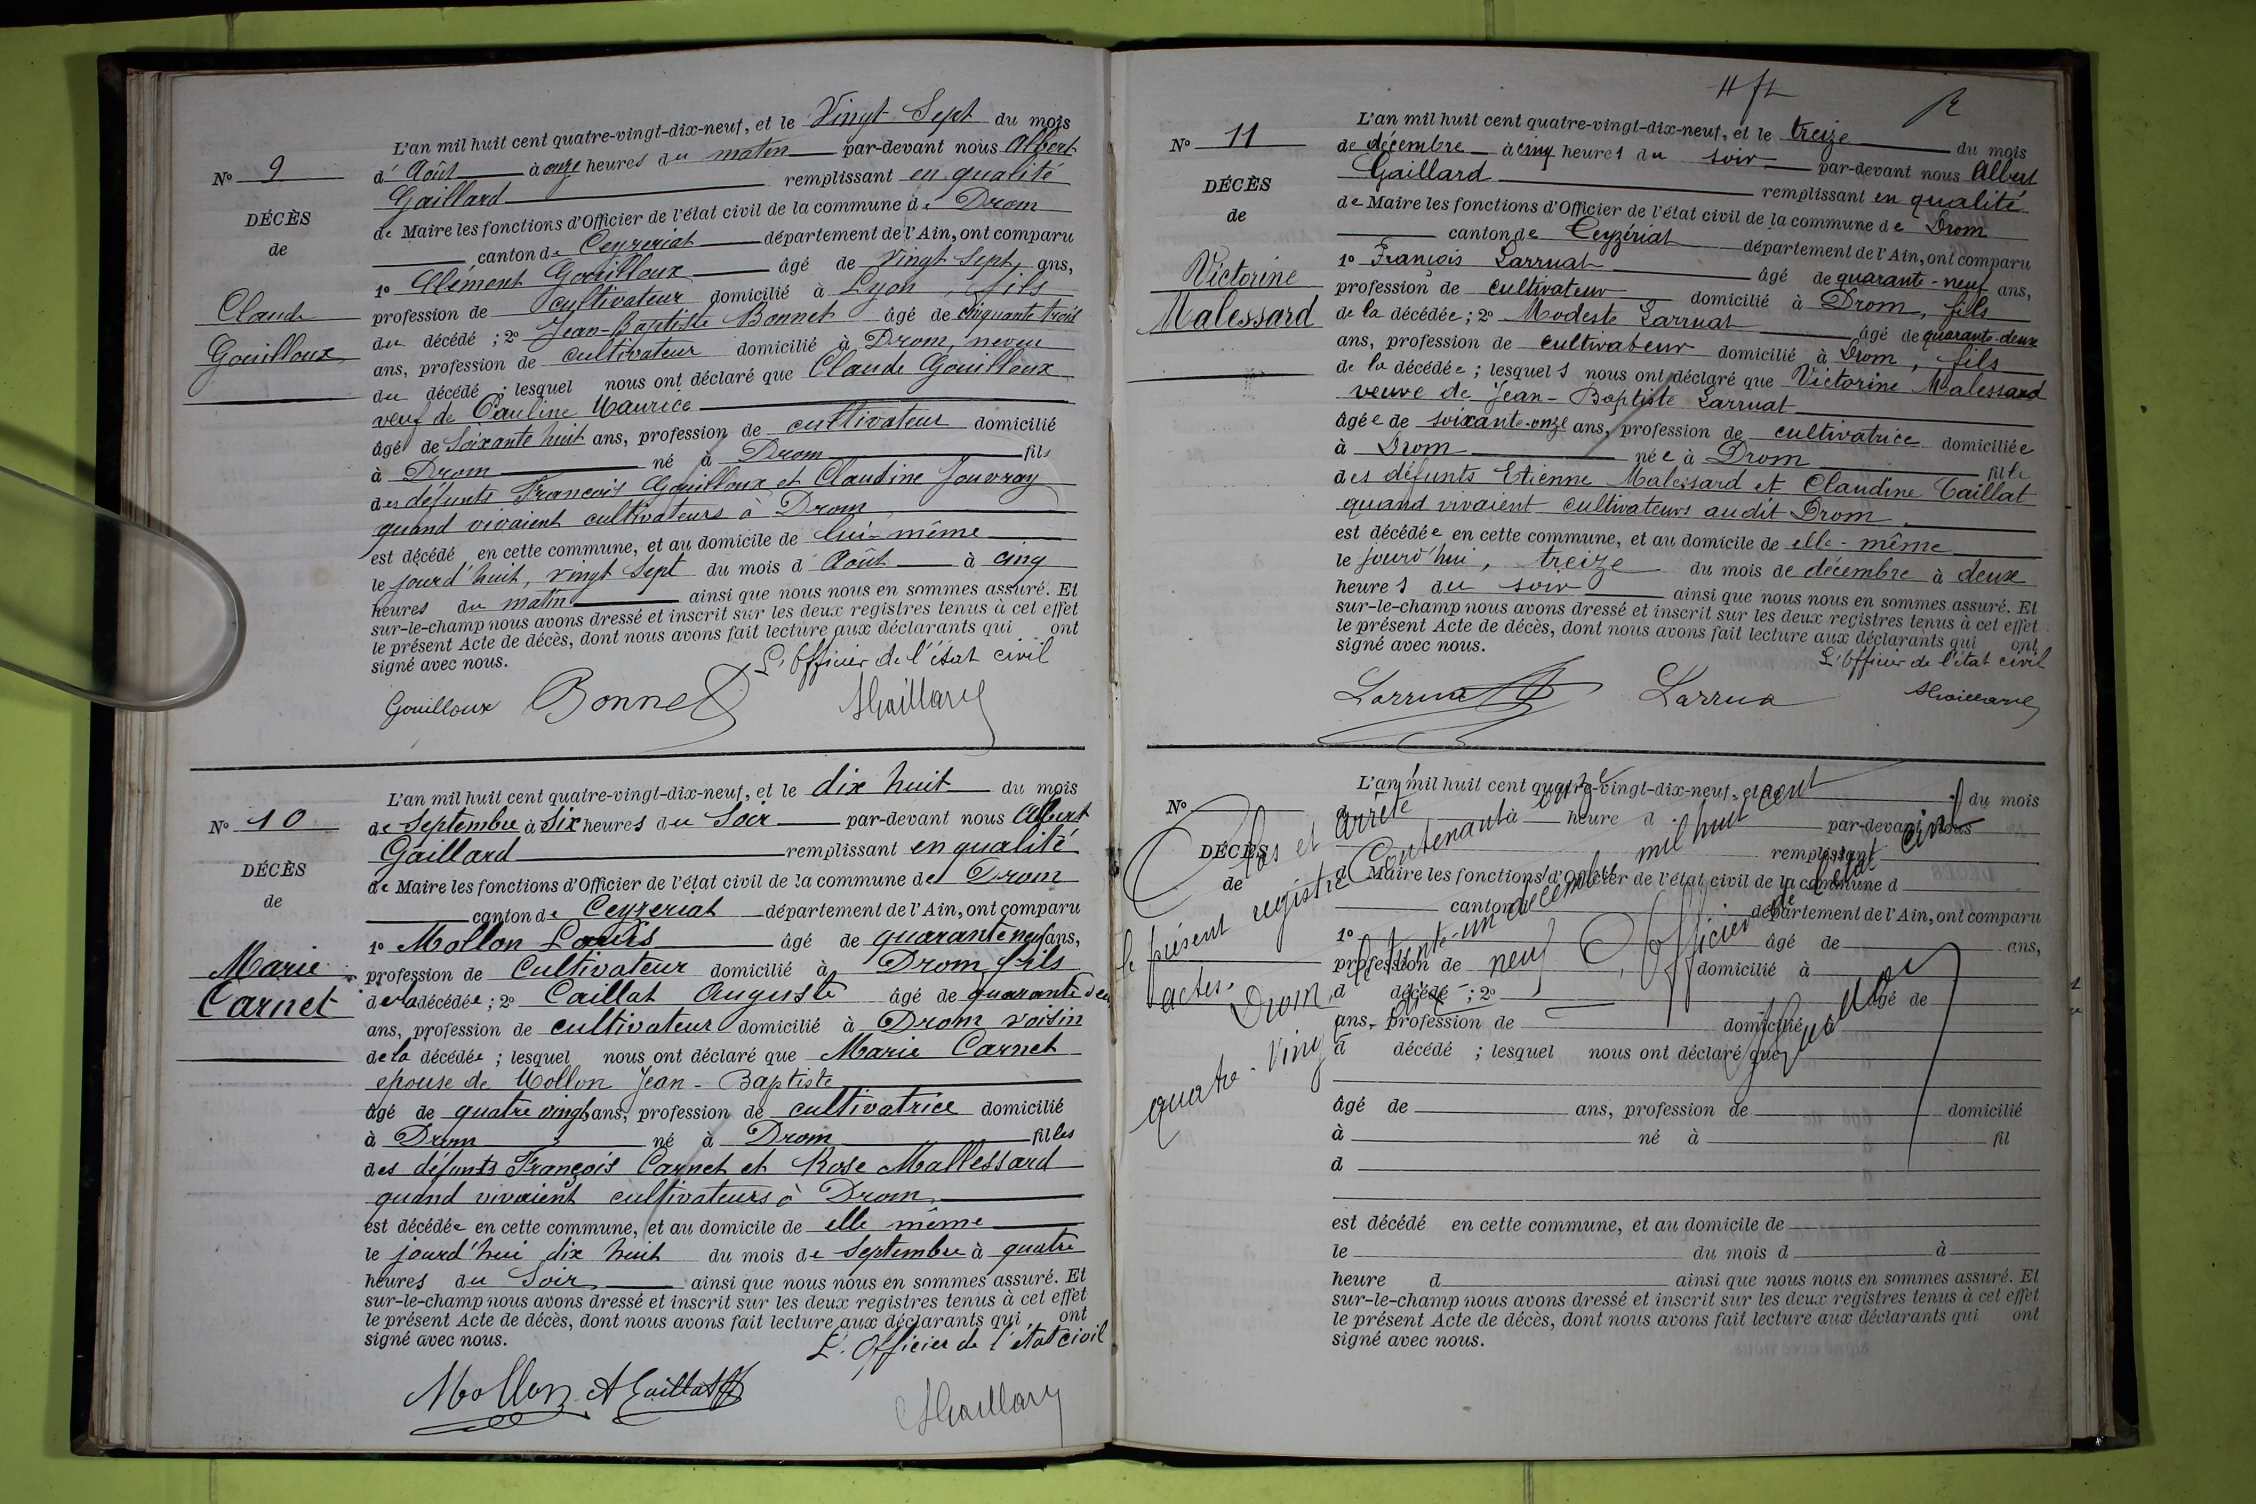 N° 9
DÉCÈS
de
Claude
Gouilloux
L'an mil huit cent quatre-vingt-dix-neuf, et le Vingt Sept du mois
d'Août à onze heures du matin par-devant nous Albert
Gaillard remplissant en qualité
de Maire les fonctions d'Officier de l'état civil de la commune de Drom
canton de Ceyzeriat département de l'Ain, ont comparu
1° Clément Gouilloux âgé de vingt sept ans,
profession de cultivateur domicilié à Lyon, fils
du décédé ; 2° Jean-Baptiste Bonnet âgé de cinquante trois
ans, profession de cultivateur domicilié à Drom, neveu
du décédé ; lesquel nous ont déclaré que Claude Gouilloux
veuf de Pauline Maurice
âgé de Soixante huit ans, profession de cultivateur domicilié
à Drom né à Drom fils
des défunts François Gouilloux et Claudine Jouvray
quand vivaient cultivateurs à Drom
est décédé en cette commune, et au domicile de lui-même
le jourd'huit, vingt Sept du mois d'Août à cinq
heures du matin ainsi que nous nous en sommes assuré. Et
sur-le-champ nous avons dressé et inscrit sur les deux registres tenus à cet effet
le présent Acte de décès, dont nous avons fait lecture aux déclarants qui ont
signé avec nous.
L'Officier de l'état civil
Gouilloux Bonnet AGaillard
N° 10
DÉCÈS
de
Marie
Carnet
L'an mil huit cent quatre-vingt-dix-neuf, et le dix huit du mois
de Septembre à Six heures du Soir par-devant nous Albert
Gaillard remplissant en qualité
de Maire les fonctions d'Officier de l'état civil de la commune de Drom
canton de Ceyzeriat département de l'Ain, ont comparu
1° Mollon Louis âgé de quarante neuf ans,
profession de Cultivateur domicilié à Drom fils
de la décédée ; 2° Caillat Auguste âgé de quarante deux
ans, profession de cultivateur domicilié à Drom voisin
de la décédée ; lesquel nous ont déclaré que Marie Carnet
epouse de Mollon Jean-Baptiste
âgé de quatre vingt ans, profession de cultivatrice domicilié
à Drom né à Drom filles
des défunts François Carnet et Rose Mallessard
quand vivaient cultivateurs à Drom
est décédée en cette commune, et au domicile de elle même
le jourd'hui dix huit du mois de Septembre à quatre
heures du Soir ainsi que nous nous en sommes assuré. Et
sur-le-champ nous avons dressé et inscrit sur les deux registres tenus à cet effet
le présent Acte de décès, dont nous avons fait lecture aux déclarants qui ont
signé avec nous.
L'Officier de l'état civil
Mollon ACaillat AGaillard
N° 11
DÉCÈS
de
Victorine
Malessard
L'an mil huit cent quatre-vingt-dix-neuf, et le treize du mois
de décembre à cinq heures du soir par-devant nous Albert
Gaillard remplissant en qualité
de Maire les fonctions d'Officier de l'état civil de la commune de Drom
canton de Ceyzériat département de l'Ain, ont comparu
1° François Larruat âgé de quarante-neuf ans,
profession de cultivateur domicilié à Drom, fils
de la décédée ; 2° Modeste Larruat âgé de quarante-deux
ans, profession de cultivateur domicilié à Drom, fils
de la décédée ; lesquels nous ont déclaré que Victorine Malessard
veuve de Jean-Baptiste Larruat
âgée de soixante-onze ans, profession de cultivatrice domiciliée
à Drom née à Drom fille
des défunts Etienne Malessard et Claudine Caillat
quand vivaient cultivateurs audit Drom
est décédée en cette commune, et au domicile de elle-même
le jourd'hui, treize du mois de décembre à deux
heures du soir ainsi que nous nous en sommes assuré. Et
sur-le-champ nous avons dressé et inscrit sur les deux registres tenus à cet effet
le présent Acte de décès, dont nous avons fait lecture aux déclarants qui ont
signé avec nous.
L'Officier de l'état civil
Larruat Larrua AGaillard
N°
DÉCÈS
de
L'an mil huit cent quatre-vingt-dix-neuf, et le du mois
d à heure d par-devant nous
remplissant
d Maire les fonctions d'Officier de l'état civil de la commune d
canton d département de l'Ain, ont comparu
1° âgé de ans,
profession de domicilié à
d décédé ; 2° âgé de
ans, profession de domicilié à
d décédé ; lesquel nous ont déclaré que
âgé de ans, profession de domicilié
à né à fil
d
est décédé en cette commune, et au domicile de
le du mois d à
heure d ainsi que nous nous en sommes assuré. Et
sur-le-champ nous avons dressé et inscrit sur les deux registres tenus à cet effet
le présent Acte de décès, dont nous avons fait lecture aux déclarants qui ont
signé avec nous.
Clos et arrêté
le présent registre Contenant onze
actes.
Drom, le trente-un décembre mil huit cent
quatre-vingt dix neuf
L'Officier de l'état civil
AGaillard